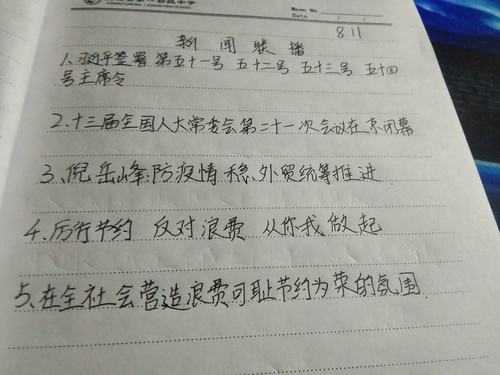 Memo No.
Date / /
811
新闻联播
1、习近平签署 第五十一号 五十二号 五十三号 五十四
号主席令
2、十三届全国人大常委会第二十一次会议在京闭幕
3、倪岳峰:防疫情 稳外贸统筹推进
4、厉行节约 反对浪费 从你我做起
5、在全社会营造浪费可耻节约为荣的氛围